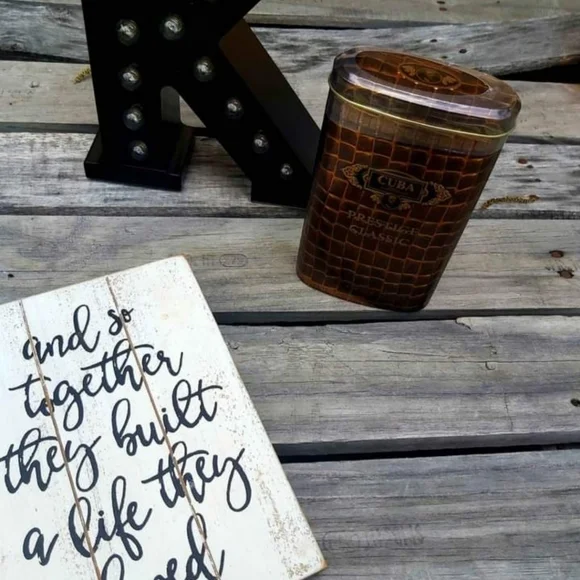 K
CUBA
PRESTIGE
CLASSIC
and so
together
they built
a life they
loved